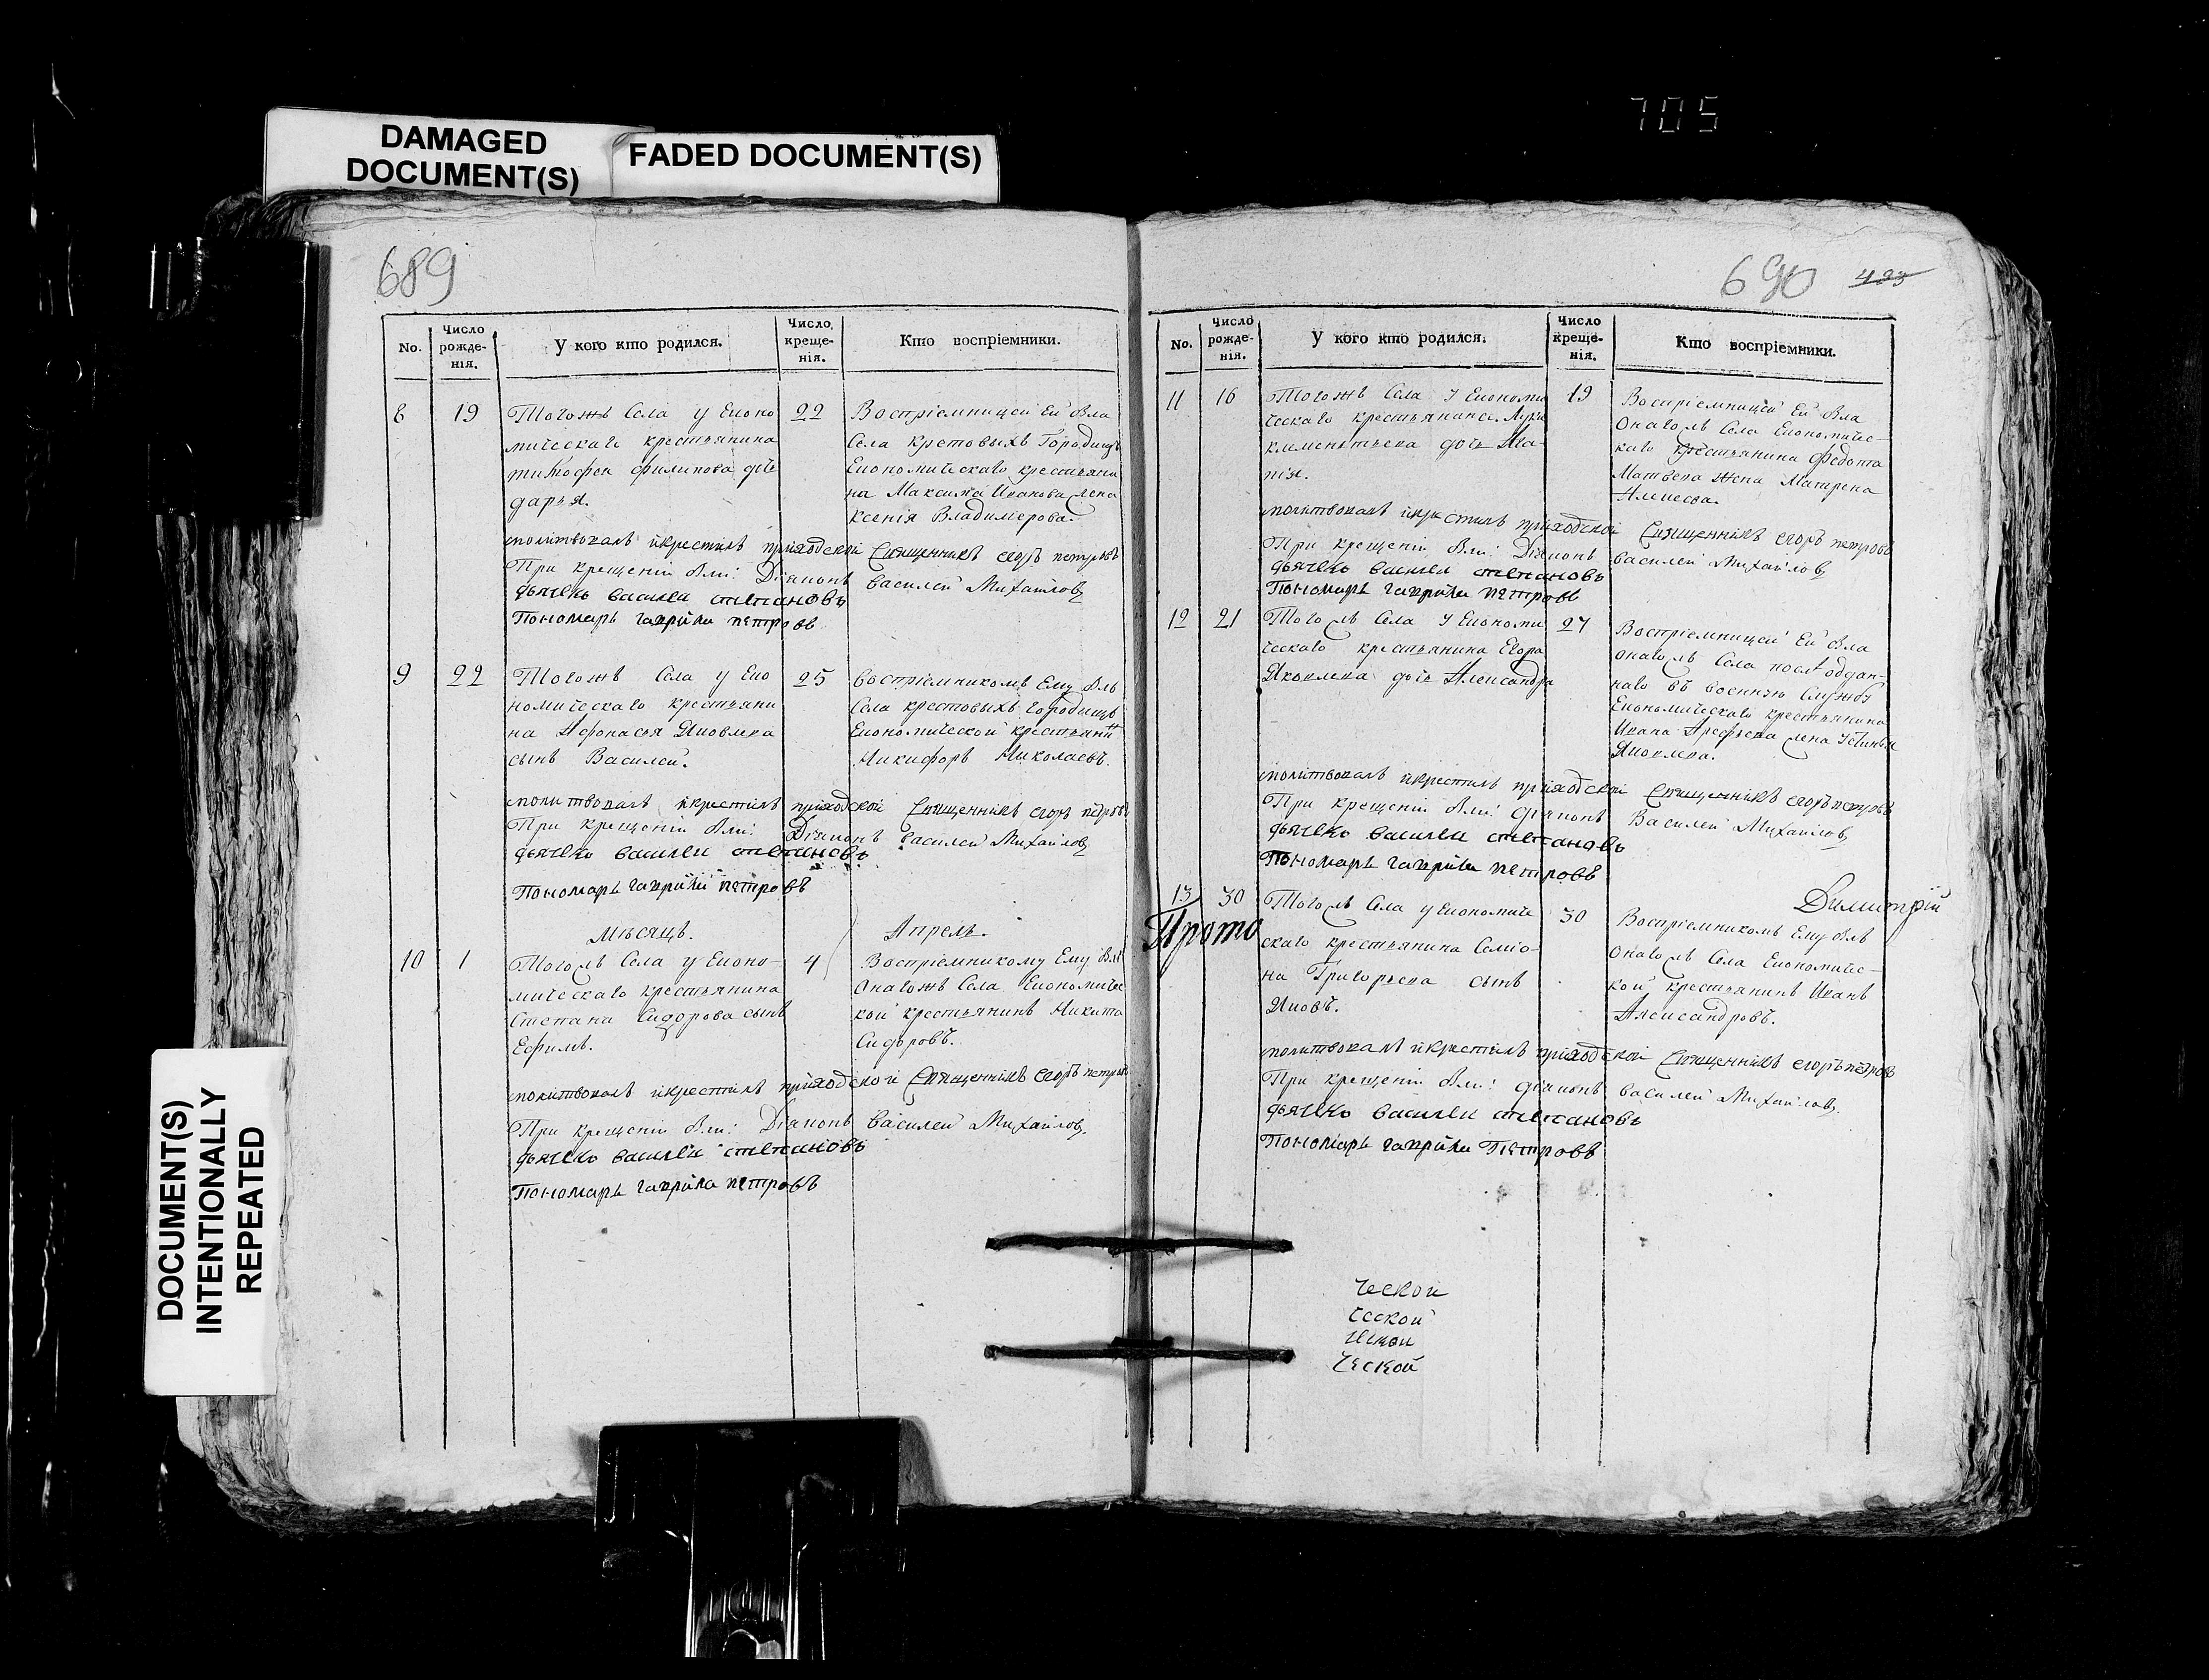 705
DAMAGED
DOCUMENT(S)
FADED DOCUMENT(S)
DOCUMENT(S)
INTENTIONALLY
REPEATED
689
No.
Число рожденія.
У кого кто родился.
Число крещенія.
Кто воспріемники.
8 19 Тогожъ Села у Еконо 22
мическаго крестьянина
тимофея филипова
дарья.
Воспріемницей Ей была
Села крстовыхъ Городищъ
Економическаго крестьяни
на Максима Иванова жена
Ксенія Владимерова.
молитвовалъ икрестилъ приходской Священникъ егоръ петровъ
При крещеніи были: Діаконъ василей Михайловъ
дьячекъ василеи степановъ
Пономарь гаврила петровъ
9 22 Тогожъ Села у Еко 25
номическаго крестьяни
на Афонасья Яковлева
сынъ Василей.
воспріемникомъ Ему былъ
Села крестовыхъ городищъ
Економической крестьянинъ
Никифоръ Николаевъ.
молитвовалъ икрестилъ приходской Священникъ егоръ петровъ
При крещеніи были: Діаконъ василей Михайловъ
дьячекъ василеи степановъ
Пономарь гаврила петровъ
Мѣсяцъ. Апрель.
10 1 Тогожъ Села у Еконо- 4
мическаго крестьянина
Степана Сидорова сынъ
Ефимъ.
Воспріемникому Ему былъ
Онагожъ Села Економичес
кой крестьянинъ Никита
Сидоровъ.
молитвовалъ икрестилъ приходской Священникъ егоръ петровъ
При крещеніи были: Діаконъ василей Михайловъ.
дьячекъ василеи степановъ
Пономарь гаврила петровъ
690 423
No.
Число рожденія.
У кого кто родился.
Число крещенія.
Кто воспріемники.
11 16 Тогожъ Села У Економи 19
ческаго крестьянина Луки
клементьева дочь Ма-
рія.
Воспріемницей Ей была
Онагожъ Села Економичес-
каго крестьянина Федота
Матвева жена Матрена
Алексева.
молитвовалъ икрестилъ приходской Священникъ егоръ петровъ
При крещеніи были: Діаконъ василей Михайловъ
дьячекъ василеи степановъ
Пономарь гаврила петровъ
12 21 Тогожъ Села У Економи 27
ческаго крестьянина Егора
Яковлева дочь Александра
Воспріемницей Ей была
онагожъ Села послѣ оддан-
наго въ военную Службу
Економическаго крестьянина
Ивана Арефьева жена Устинья
Яковлева.
молитвовалъ икрестилъ приходской Священникъ егоръ петровъ
При крещеніи были: діаконъ Василей Михайловъ
дьячекъ василеи степановъ
Пономарь гаврила петровъ
Димитрій
13 30 Тогожъ Села у Економиче 30
Прото
скаго крестьянина Семіо-
на Григорьева сынъ
Яковъ.
Воспріемникомъ Ему былъ
Онагожъ Села Економичес-
кой крестьянинъ Иванъ
Александровъ.
молитвовалъ икрестилъ приходской Священникъ егоръ петровъ
При крещеніи были: діаконъ василей Михайловъ.
дьячекъ василеи степановъ
Пономарь гаврила Петровъ
ческои
ческой
ческой